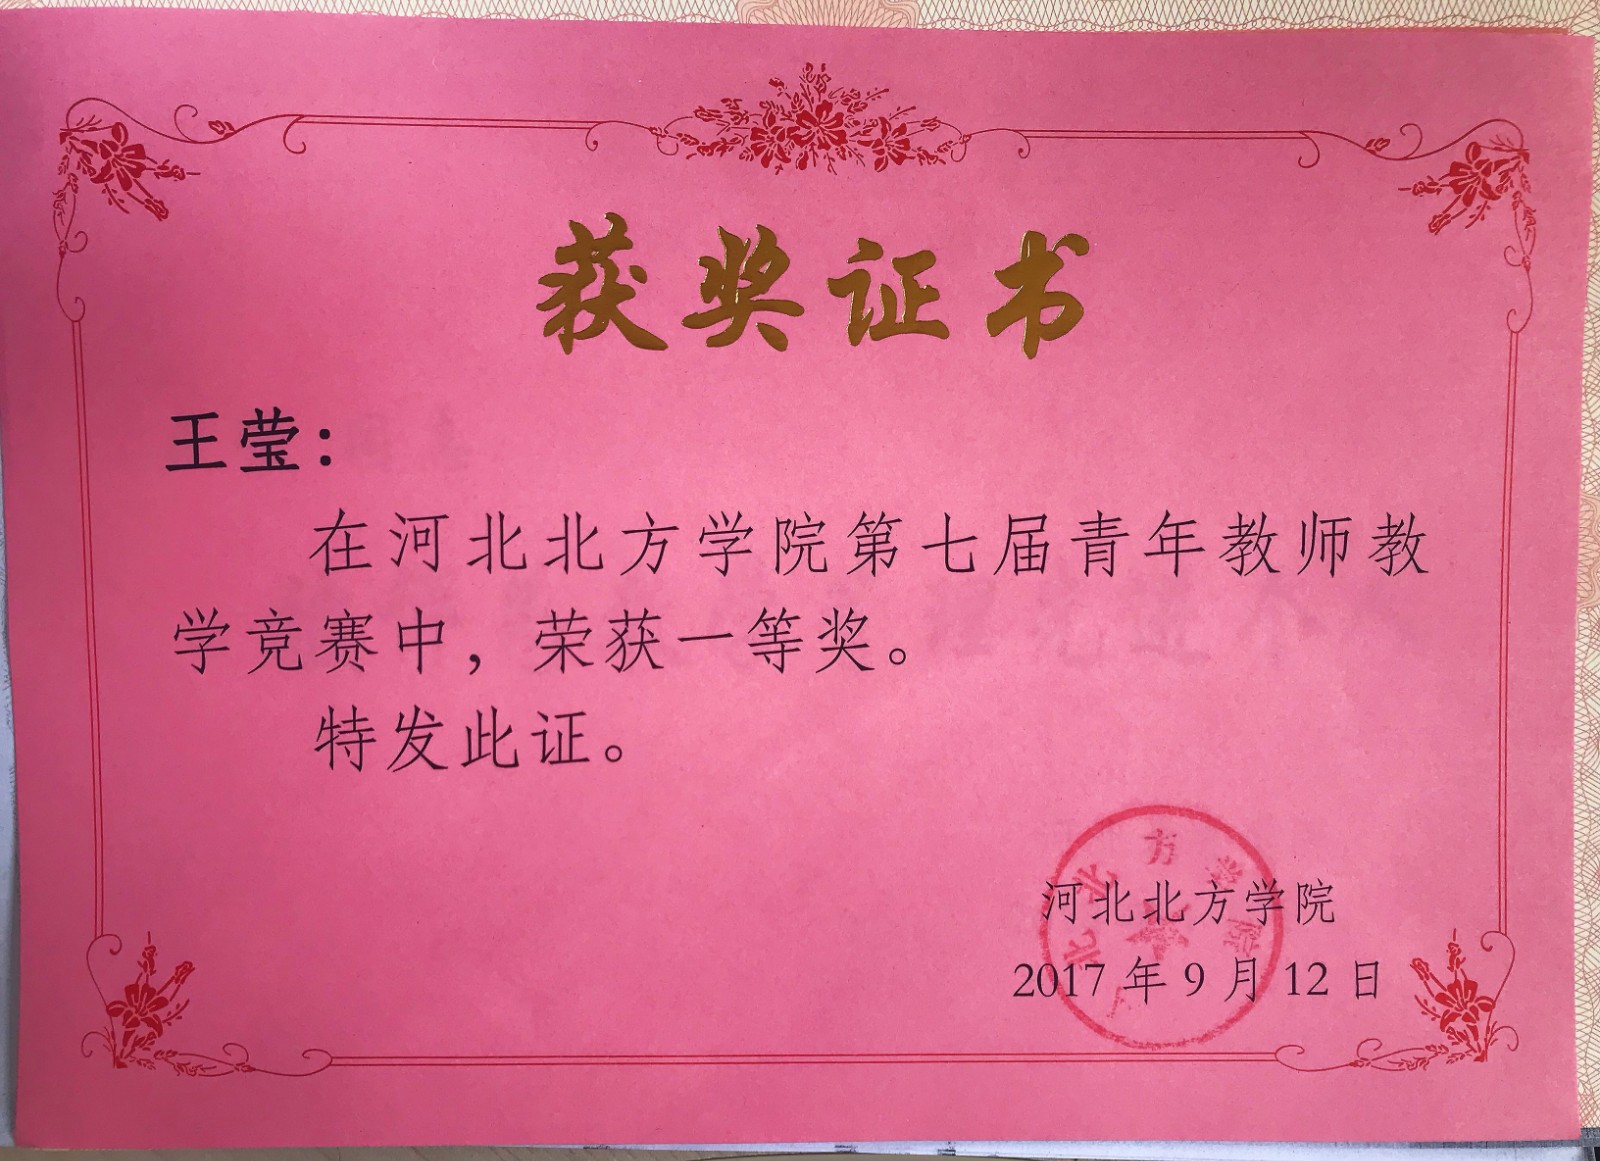 获奖证书
王莹：
在河北北方学院第七届青年教师教
学竞赛中，荣获一等奖。
特发此证。
河北北方学院
2017年9月12日